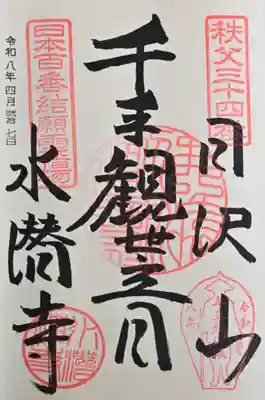 秩父三十四番
日沢山
千手観世音
日本百番結願霊場
水潜寺
令和八年四月